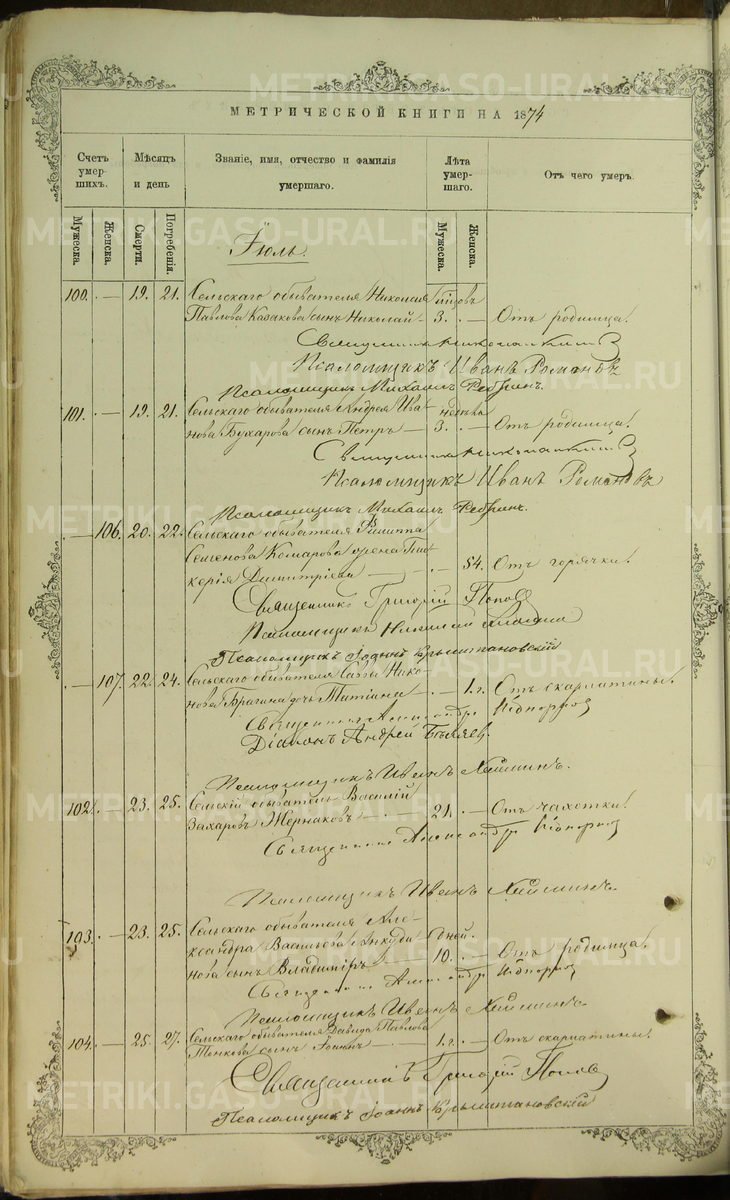 МЕТРИЧЕСКОЙ КНИГИ НА 1874
Счетъ умер-шихъ.
Мѣсяцъ и день
Званіе, имя, отчество и фамилія умершаго.
Лѣта умер-шаго.
Отъ чего умеръ.
Мужеска.
Женска.
Смерти.
Погребенія.
Мужеска.
Женска.
Іюль.
100. — 19. 21. Сельскаго обывателя Николая
Павлова Казакова сынъ Николай — 3. — Отъ родимца.
Псаломщикъ Иванъ Романовъ
Псаломщикъ Михаилъ Ребринъ.
101. — 19. 21. Сельскаго обывателя Андрея Ива-
нова Бухарова сынъ Петръ — 3. — Отъ родимца.
Псаломщикъ Иванъ Романовъ
Псаломщикъ Михаилъ Ребринъ.
— 106. 20. 22. Сельскаго обывателя Филиппа
Семенова Комарова жена Гли-
керія Димитріева — 54. Отъ горячки.
Священникъ Григорій Поповъ
Псаломщикъ
Псаломщикъ Іоаннъ Крыштановскій
— 107. 22. 24. Сельскаго обывателя Саввы Нико-
нова Брагина дочь Татіана — 1.г. Отъ скарлатины.
Священникъ Александръ
Діаконъ Андрей Бѣляев.
Псаломщикъ Иванъ
102. — 23. 25. Сельскій обыватель Василій
Захаровъ Жернаковъ — 21. — Отъ чахотки.
Священникъ Александръ
Псаломщикъ Иванъ
103. — 23. 25. Сельскаго обывателя Але-
ксандра Васильева Анкуди- дней.
нова сынъ Владиміръ — 10. — Отъ родимца.
Священникъ Александръ
Псаломщикъ Иванъ
104. — 25. 27. Сельскаго обывателя Давида Павлова
Тонкова сынъ Іоаннъ — 1.г. — Отъ скарлатины.
Священникъ Григорій Поповъ
Псаломщикъ Іоаннъ Крыштановскій
METRIKI.GASO-URAL.RU